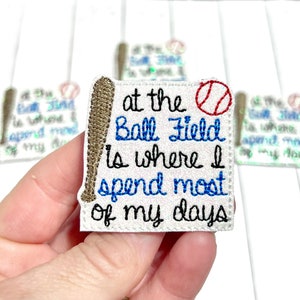 at the
Ball Field
is where I
spend most
of my days